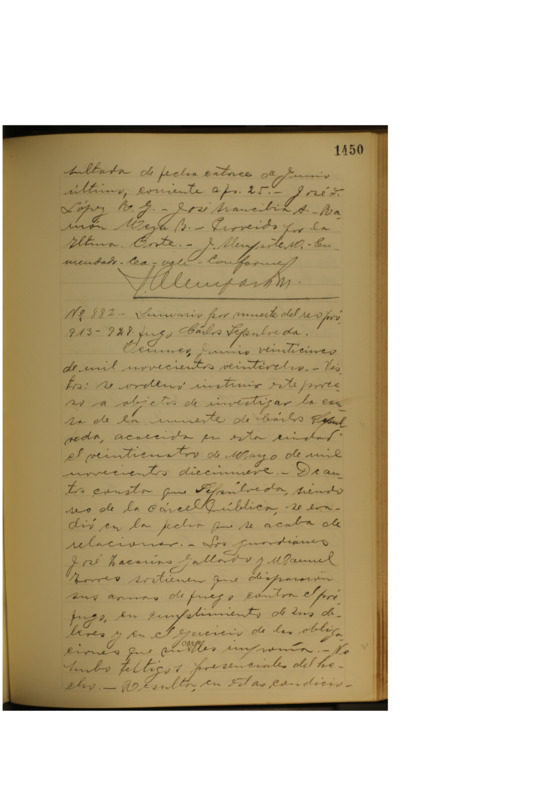 1450
sultada de fecha catorce de Junio
último, corriente a fs. 25.- José d.
López R. G. - José Arancibia A. - Ra-
món Meza B. - Proveído por la
Iltma. Corte. - J. Alemparte M. - En-
mendado - lea - vale - Conforme
J. Alemparte M.
Nº 882 - Sumario por muerte del reo pró-
913-928. fugo Cárlos Sepúlveda.
Temuco, Junio veinticinco
de mil novecientos veintiocho. - Vis-
tos: se ordenó instruir este proce-
so a objeto de investigar la cau-
sa de la muerte de Cárlos Sepúl-
veda, acaecida en esta ciudad
el veinticuatro de Mayo de mil
novecientos diecinueve. - De au-
tos consta que Sepúlveda, siendo
reo de la Cárcel Pública, se eva-
dió en la fecha que se acaba de
relacionar. - Los guardianes
José Zacarías Gallardo y Manuel
Torres sostienen que dispararon
sus armas de fuego contra el pró-
fugo, en cumplimiento de sus de-
beres y en el ejercicio de las obliga-
ciones que su cargo les imponía. - No
hubo testigos presenciales del he-
cho. - Resulta, en estas condicio-